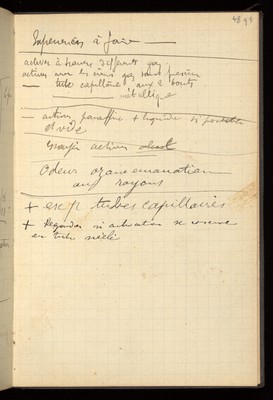 48 94
Expériences à faire
activer à travers différents gaz
activer avec les mêmes gaz sous pression
— tube capillaire aux 2 bouts
métallique
— activer paraffine + liquide si possible
et vide
Energie action
Odeur ozone emanation
aux rayons
+ exp tubes capillaires
+ Regarder si activation se conserve
en tube scellé